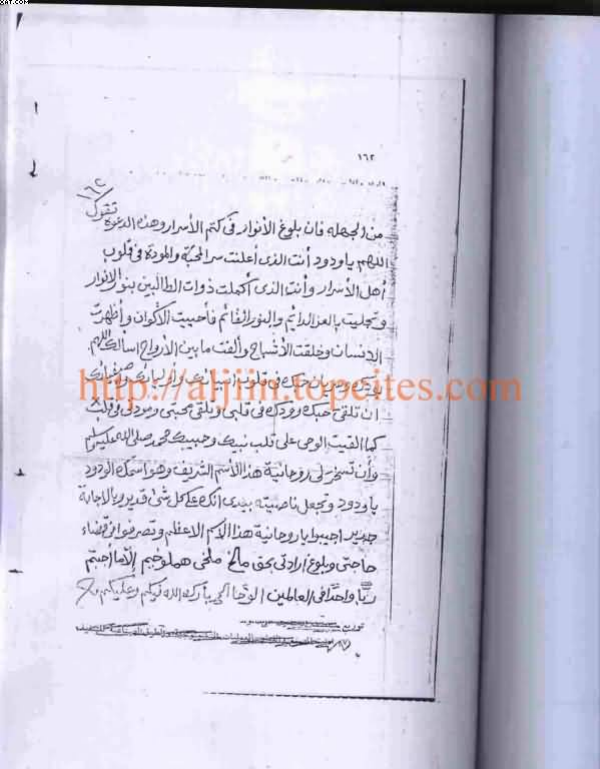 ١٦٢
١٦٢
من الجهلة فان بلوغ الأنوار فى كتم الأسرار وهذه الدعوة تقول
اللهم يا ودود أنت الذى أعلنت سر المحبة والمودة فى قلوب
أهل الأسرار وأنت الذى أكملت ذوات الطالبين بنور الانوار
وتجليت بالعز الدائم والنور القائم فأحييت الأكوان وأظهرت
الإنسان وخلقت الأشباح وألفت ما بين الأرواح اسألك اللهم
حبك فى قلوب
http://aljiin.topcites.com
ان تلقى حبك فى قلبى وتلقى محبتى ومودتى فى قلب
كما ألقيت الوحى على قلب نبيك وحبيبك محمد صلى الله عليه وسلم
وأن تسخر لى روحانية هذا الأسم الشريف وهو اسمك الودود
يا ودود وتجعل ناصيته بيدى انك على كل شئ قدير وبالاجابة
جدير اجيبوا يا روحانية هذا الاسم الاعظم وتصرفوا فى قضاء
حاجتى وبلوغ ارادتى بحق إلا ما أجبتم
ربًا واحدًا فى العالمين الوحا بارك الله فيكم وعليكم